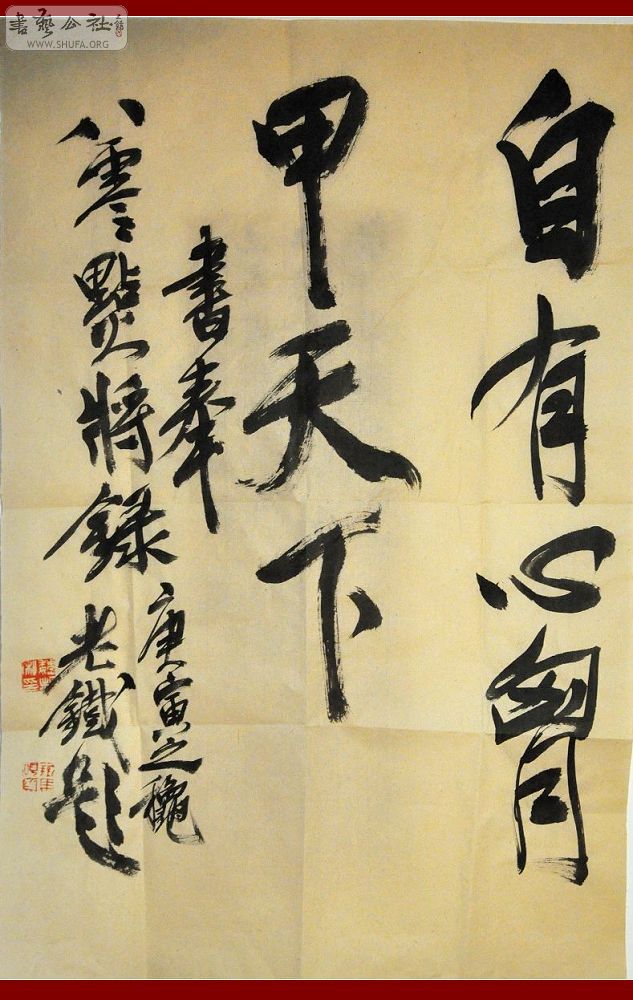 書藝公社
WWW.SHUFA.ORG
自有心胷
甲天下
書奉
八零點將錄
庚寅之穐
老鐵題